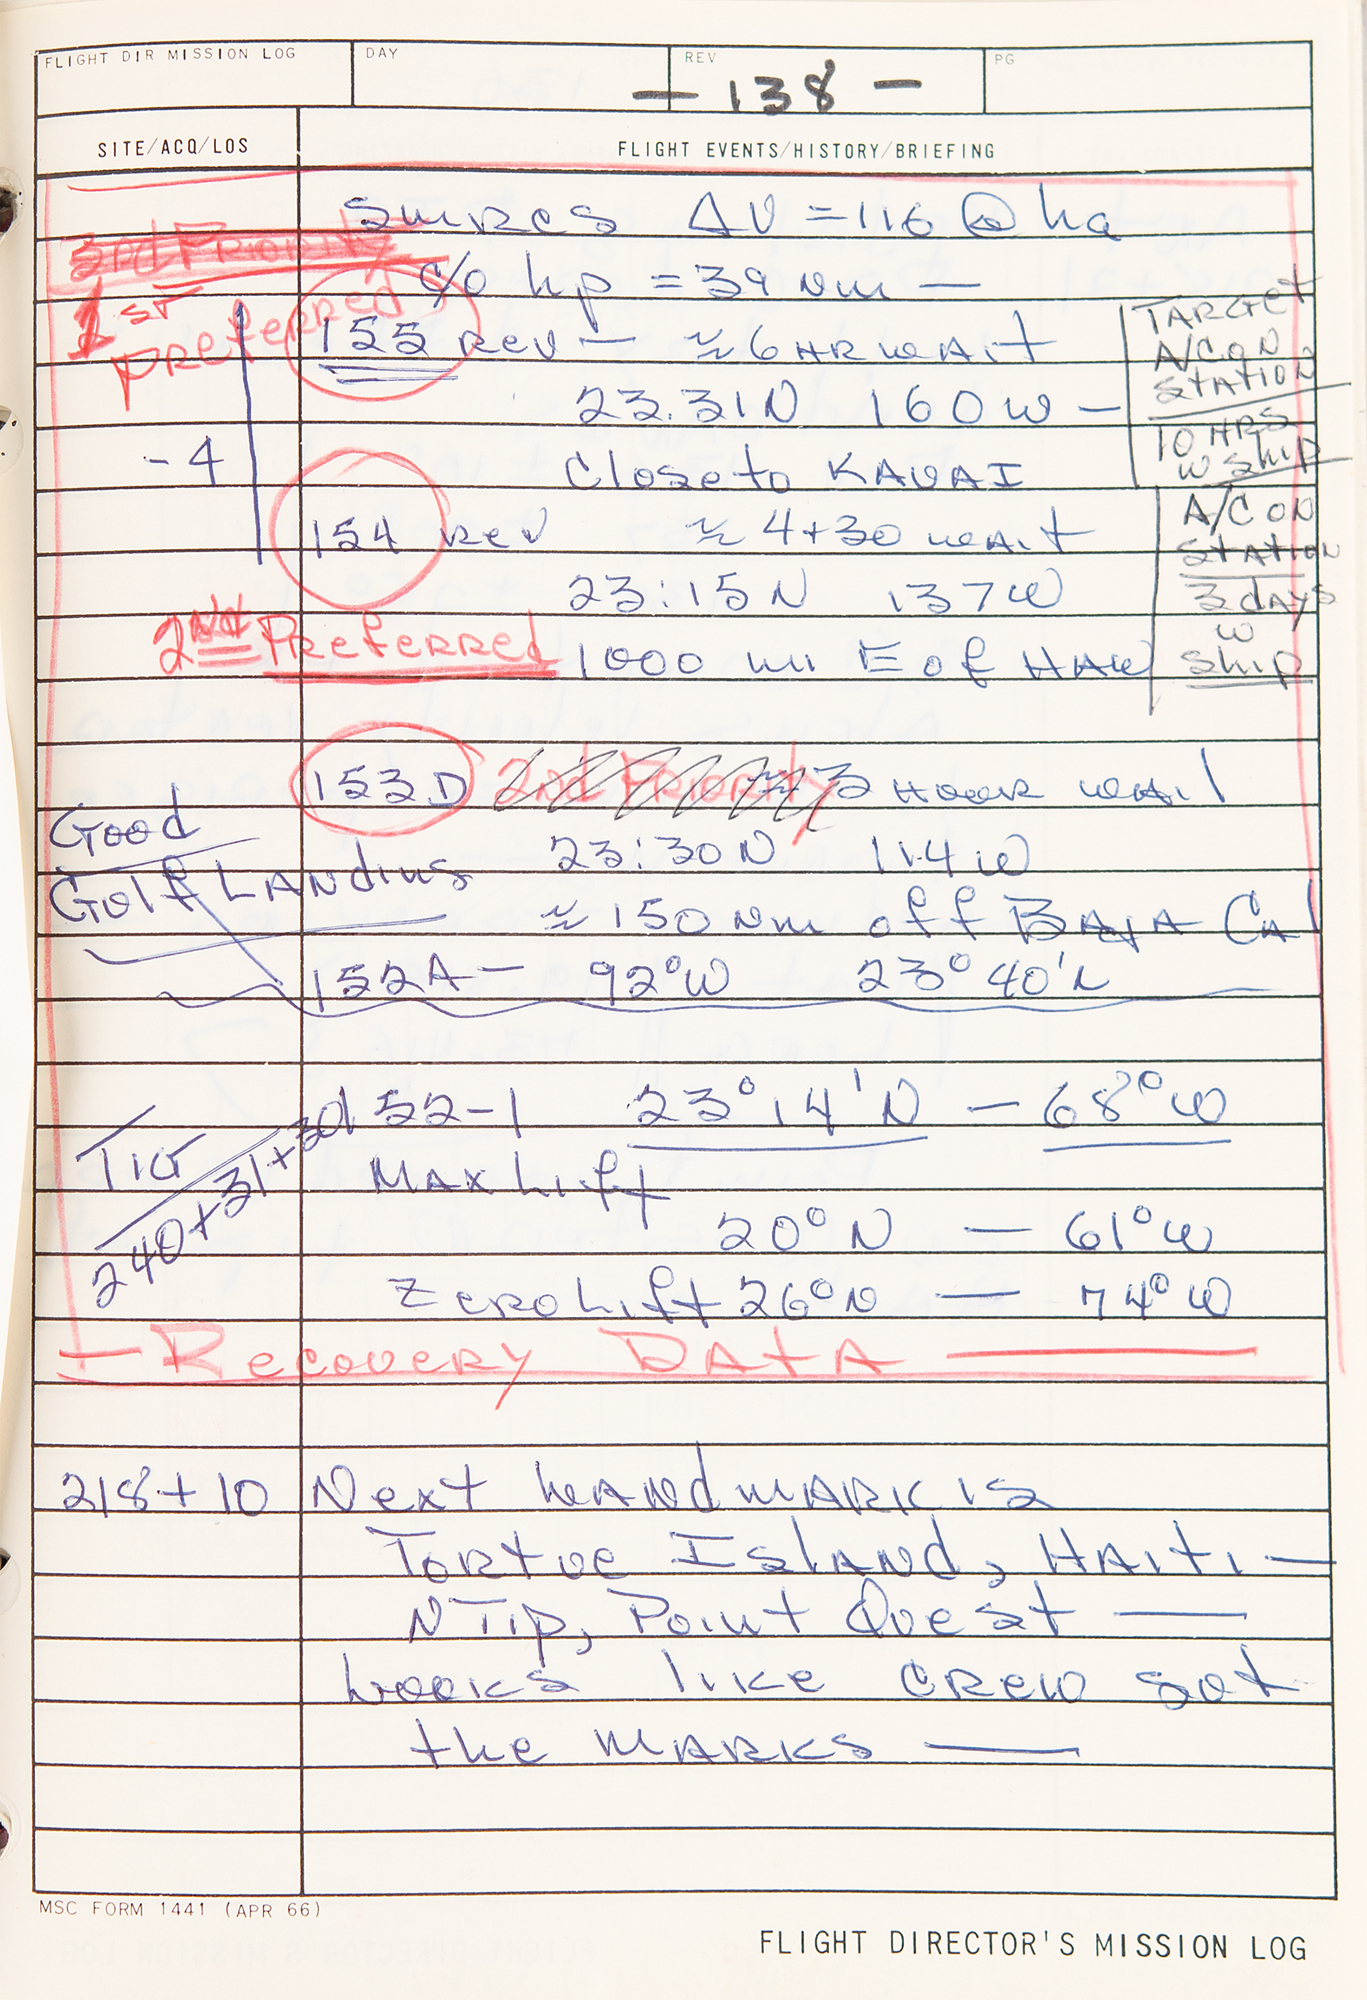 FLIGHT DIR MISSION LOG DAY REV PG
- 138 -
SITE/ACQ/LOS FLIGHT EVENTS/HISTORY/BRIEFING
ΔV = 116 @ ha
2nd Priority
c/o hp = 39 Nm —
1st Preferred
155 Rev — ≈ 6 HR WAit
23.31N 160W —
TARGET
A/C ON
STATION
10 HRS
W Ship
- 4
Close to KAUAI
154 Rev ≈ 4+30 WAit
23:15N 137W
A/C ON
STATION
3 dAYS
W
Ship
2nd Preferred
1000 mi E of HAW
153D 2nd Priority ≈ 3 Hour WAit
Good
23:30N 114W
Golf LANDING
≈ 150 Nm off BAJA CAl
152A - 92°W 23° 40'N
TIG
240+31+30
152-1 23° 14'N — 68°W
MAX Lift
20°N — 61°W
Zero Lift 26°N — 74°W
— Recovery DATA —
218+10 Next LANdmARK is
Tortue IslANd, HAiti —
N Tip, Point Ouest —
Looks like CREW got
the MARKS —
MSC FORM 1441 (APR 66)
FLIGHT DIRECTOR'S MISSION LOG